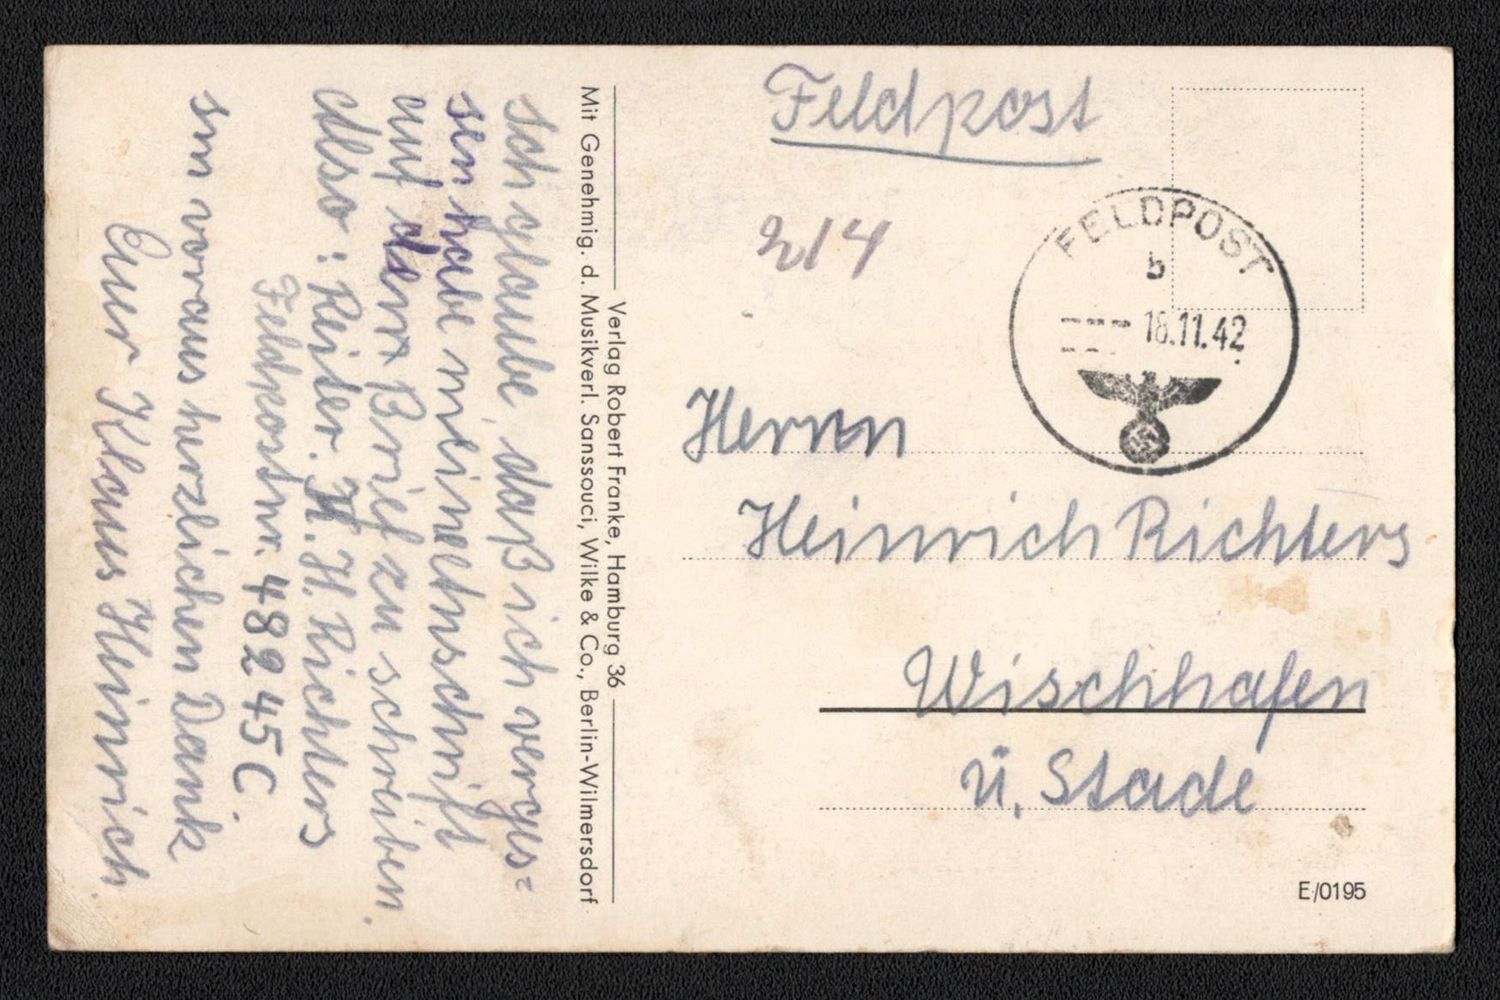 Feldpost
214
FELDPOST
b
18.11.42
Herrn
Heinrich Richters
Wischhafen
ü. Stade
E/0195
Verlag Robert Franke, Hamburg 36
Mit Genehmig. d. Musikverl. Sanssouci, Wilke & Co., Berlin-Wilmersdorf
Ich glaube, daß ich verges=
sen habe meine Anschrift
auf dem Brief zu schreiben.
also: Reiter. K. H. Richters
Feldpostnr. 48245 C.
Im voraus herzlichen Dank
Euer Klaus Heinrich.